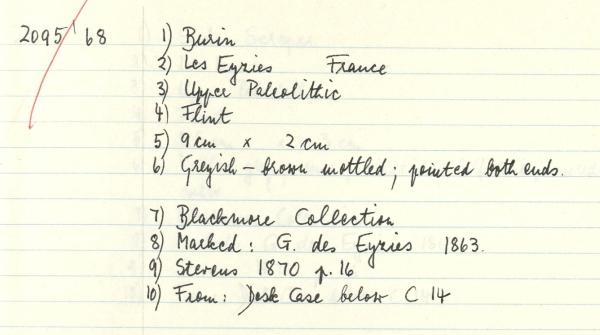 2095 / 68 1) Burin
2) Les Eyzies France
3) Upper Paleolithic
4) Flint
5) 9 cm x 2 cm
6) Greyish - brown mottled; pointed both ends.
7) Blackmore Collection
8) Marked: G. des Eyzies 1863.
9) Stevens 1870 p. 16
10) From: Desk Case below C 14